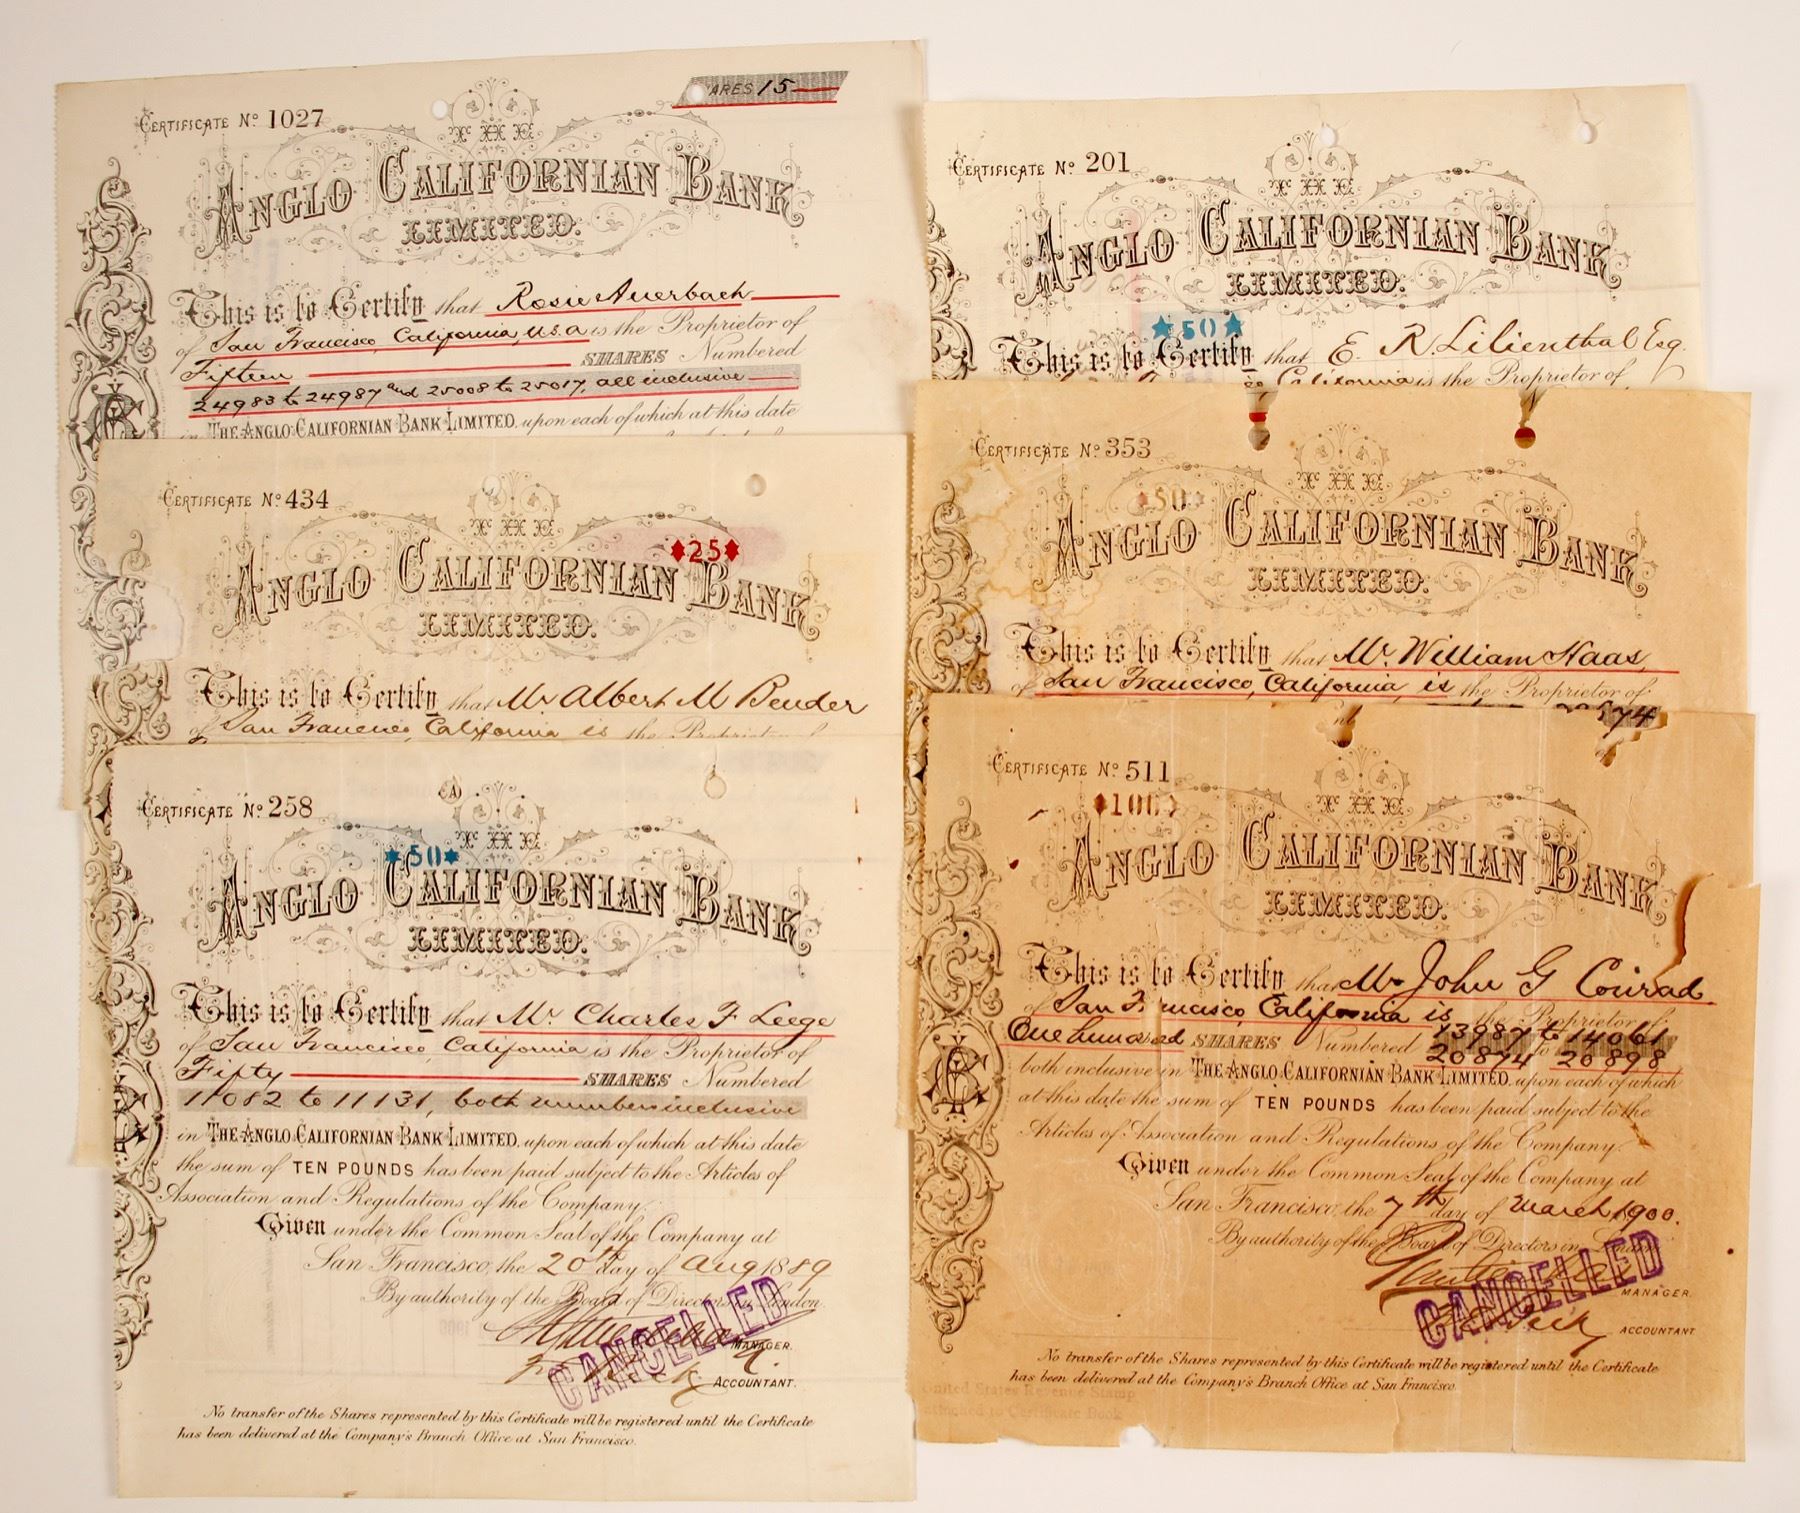 CERTIFICATE No. 1027
ARES 15
THE
ANGLO CALIFORNIAN BANK
LIMITED.
This is to Certify that Rosie Auerbach
of San Francisco, California, U.S.A is the Proprietor of
Fifteen SHARES Numbered
24983 to 24987 and 25008 to 25017, all inclusive
in THE ANGLO CALIFORNIAN BANK LIMITED, upon each of which at this date
CERTIFICATE No. 434
THE
25
ANGLO CALIFORNIAN BANK
LIMITED.
This is to Certify that Mr Albert M Bender
of San Francisco, California is the Proprietor of
CERTIFICATE No. 258
THE
50
ANGLO CALIFORNIAN BANK
LIMITED.
This is to Certify that Mr. Charles F Leege
of San Francisco, California is the Proprietor of
Fifty SHARES Numbered
11082 to 11131, both numbers inclusive
in THE ANGLO CALIFORNIAN BANK LIMITED, upon each of which at this date
the sum of TEN POUNDS has been paid subject to the Articles of
Association and Regulations of the Company.
Given under the Common Seal of the Company at
San Francisco, the 20th day of Aug 1889
By authority of the Board of Directors in London.
MANAGER.
CANCELLED
ACCOUNTANT.
No transfer of the Shares represented by this Certificate will be registered until the Certificate
has been delivered at the Company's Branch Office at San Francisco.
CERTIFICATE No. 201
THE
ANGLO CALIFORNIAN BANK
LIMITED.
50
This is to Certify that E. R. Lilienthal Esq.
California is the Proprietor of
CERTIFICATE No. 353
THE
50
ANGLO CALIFORNIAN BANK
LIMITED.
This is to Certify that Mr. William Haas,
of San Francisco, California, is the Proprietor of
CERTIFICATE No. 511
THE
100
ANGLO CALIFORNIAN BANK
LIMITED.
This is to Certify that Mr John G Conrad
of San Francisco, California is the Proprietor of
One hundred SHARES Numbered 13987 to 14061
20874 to 20898
both inclusive in THE ANGLO CALIFORNIAN BANK LIMITED, upon each of which
at this date the sum of TEN POUNDS has been paid subject to the
Articles of Association and Regulations of the Company.
Given under the Common Seal of the Company at
San Francisco, the 7th day of March 1900.
By authority of the Board of Directors in London
MANAGER.
CANCELLED
ACCOUNTANT
No transfer of the Shares represented by this Certificate will be registered until the Certificate
has been delivered at the Company's Branch Office at San Francisco.
United States Revenue Stamp
attached to Certificate Book